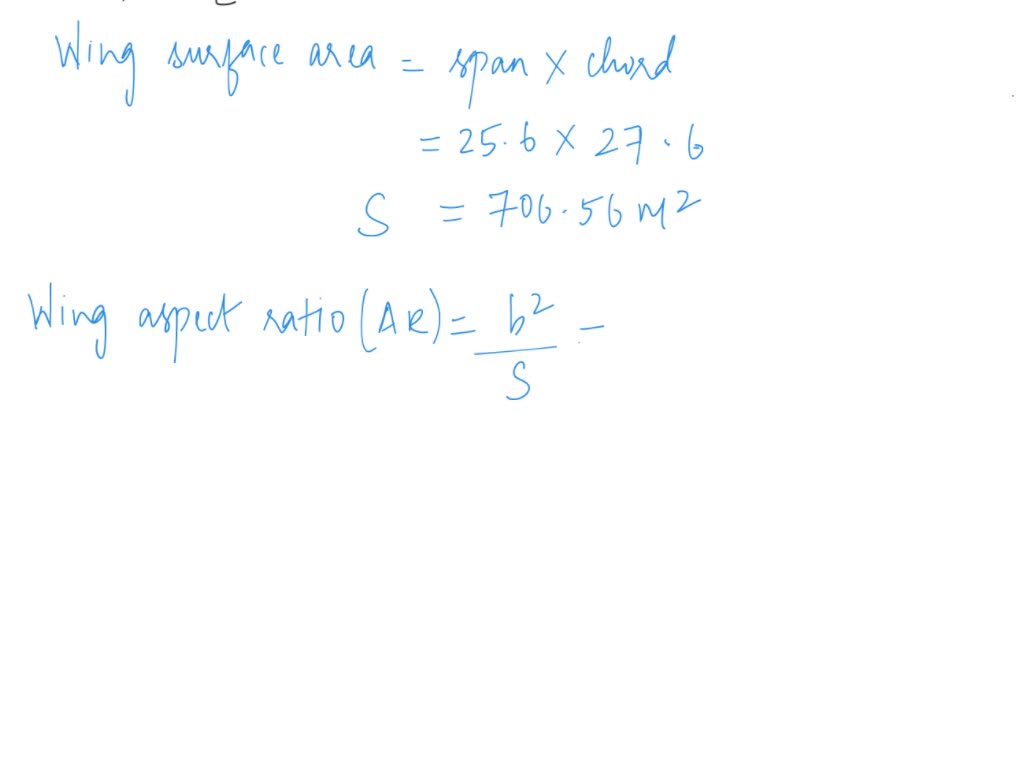 Wing surface area = span × chord
= 25.6 × 27.6
S = 706.56 m²
Wing aspect ratio (AR) = b² / S =